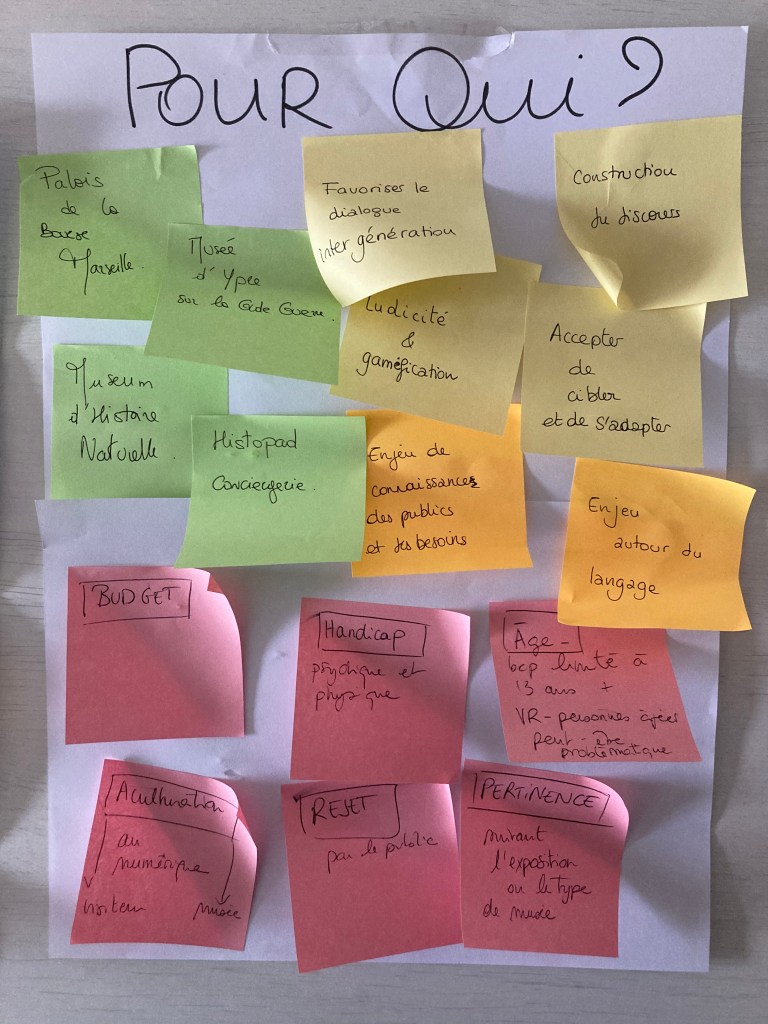 POUR QUI ?
Palais
de la
Bourse
Marseille.
Musée
d'Ypre
sur la Gde Guerre.
Favoriser le
dialogue
inter génération
Construction
du discours
Ludicité
&
gaméfication
Accepter
de
cibler
et de s'adapter
Museum
d'Histoire
Naturelle.
Histopad
Conciergerie.
Enjeu de
connaissances
des publics
et des besoins
Enjeu
autour du
langage
BUDGET
Handicap
psychique et
physique
Âge -
bcp limité à
13 ans +
VR - personnes âgées
peut-être
problématique
Aculturation
au
numérique
visiteur musée
REJET
par le public
PERTINENCE
suivant
l'exposition
ou le type
de musée